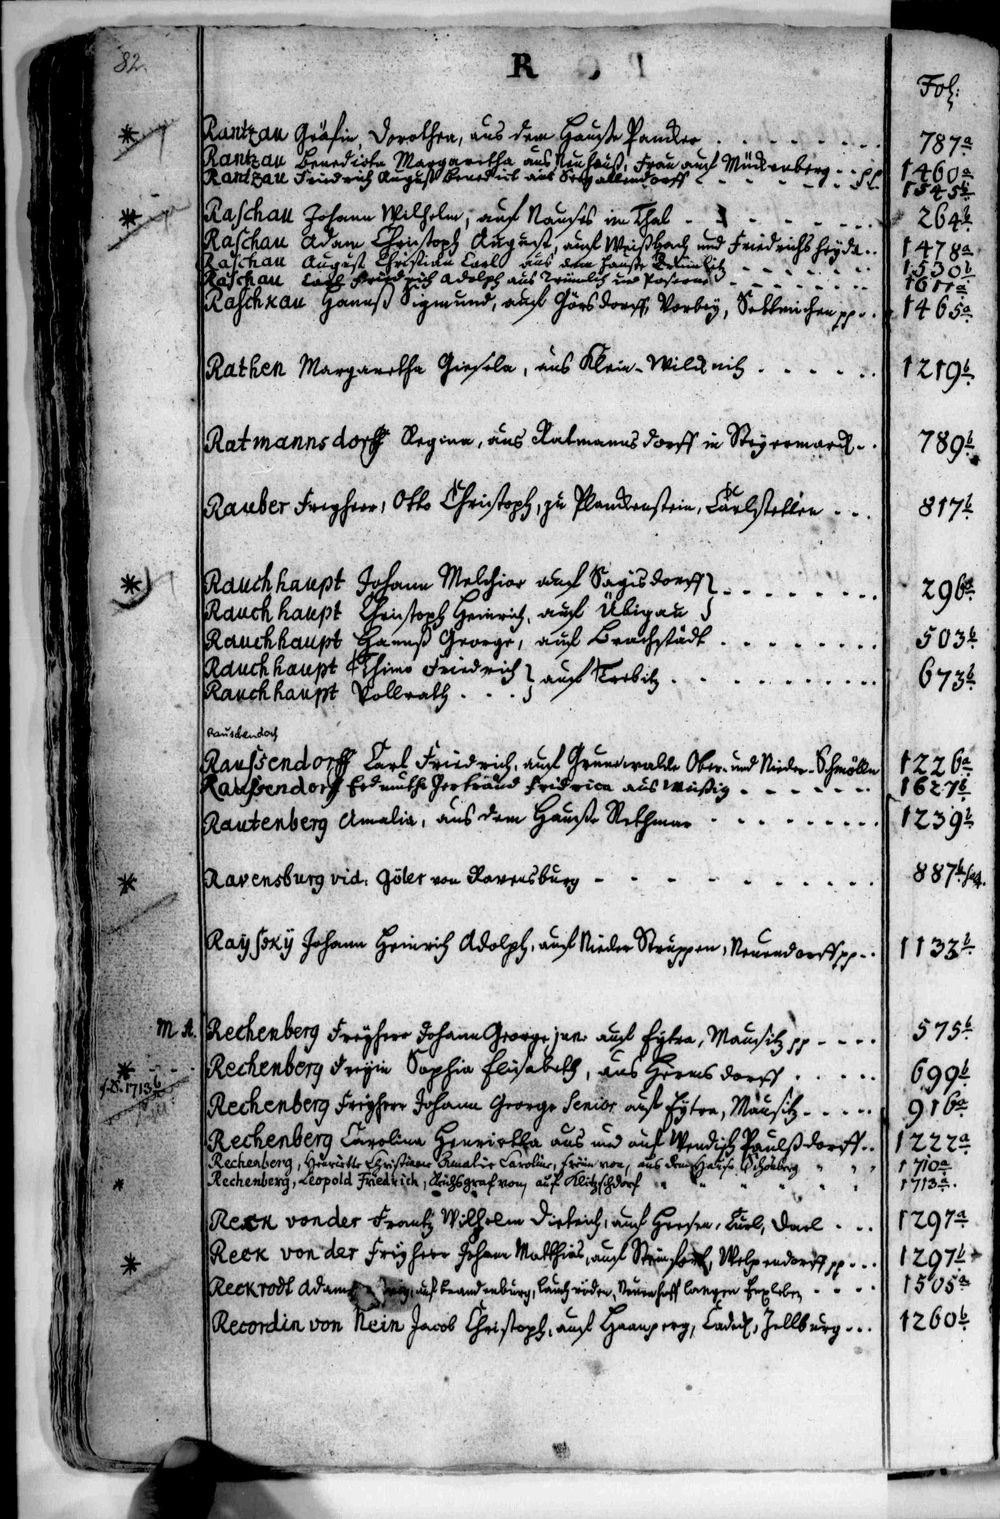 82.
R
Fol:
Rantzau Gräfin, Dorothea, aus dem Hauße Pancker 787a
Rantzau Benedicta Margaritha aus Neuhauß, Frau auf Mückenberg 1460a
Rantzau Friedrich August Benedict aus 1545b
Raschau Johann Wilhelm, auf Nauses im Thal 264b
Raschau Adam Christoph August, auf Weißbach und Friedrichsheyde 1478a
Raschau August Christian Carl aus dem Hauße 1530b
Raschau Carl Friedrich Adolph aus und Poseren 1611a
Raschkau Hannß Sigmund, auf Görsdorff, Vorbey, pp 1465a
Rathen Margaretha Giesela, aus Klein-Wilknitz 1219b
Ratmannsdorff Regina, aus Ratmannsdorff in Steyermarck 789b
Rauber Freyherr, Otto Christoph, zu Planckenstein, Carlstetten 817b
Rauchhaupt Johann Melchior auf Sagisdorff 296a
Rauchhaupt Christoph Heinrich, auf Übigau
Rauchhaupt Hannß George, auf Brachstädt 503b
Rauchhaupt Thimo Friedrich auf Trebitz 673b
Rauchhaupt Vollrath
Rauschendorf
Raussendorff Carl Friedrich, auf Grunewalde Ober- und Nieder-Schmölln 1226a
Raussendorf Erdmutha Gertraud Fridrica aus 1627b
Rautenberg Amalia, aus dem Hauße Rethmar 1239b
Ravensburg vid: Göler von Ravensburg 887b seq.
Rayssky Johann Heinrich Adolph, auf Nieder Struppen, Neuendorff pp 1133b
M A. Rechenberg Freyherr Johann George jun. auf Eytra, Mausitz pp 575b
Rechenberg Freyin Sophia Elisabeth, aus Hermsdorff 699b
f.S. 1713b
Rechenberg Freyherr Johann George Senior auf Eytra, Mausitz 916a
Rechenberg Carolina Henrietta aus und auf Wendisch Paulsdorff 1222a
Rechenberg, Henriette Christiane Amalie Caroline, Freiin von, aus dem Hause Schönberg 1710a
Rechenberg, Leopold Friedrich, Reichsgraf von, auf Klitzschdorf 1713a.
Reck von der Frantz Wilhelm Dieterich, auf Heesen, Curl, Dael 1297a
Reck von der Freyherr Johann Matthias, auf Steinfort, Welpendorff pp 1297b
Reckrodt Adam auf Brandenburg, Lauchröden, Neuenhoff langen 1505a
Recordin von Nein Jacob Christoph, auf Haunperg, Zellburg 1260b